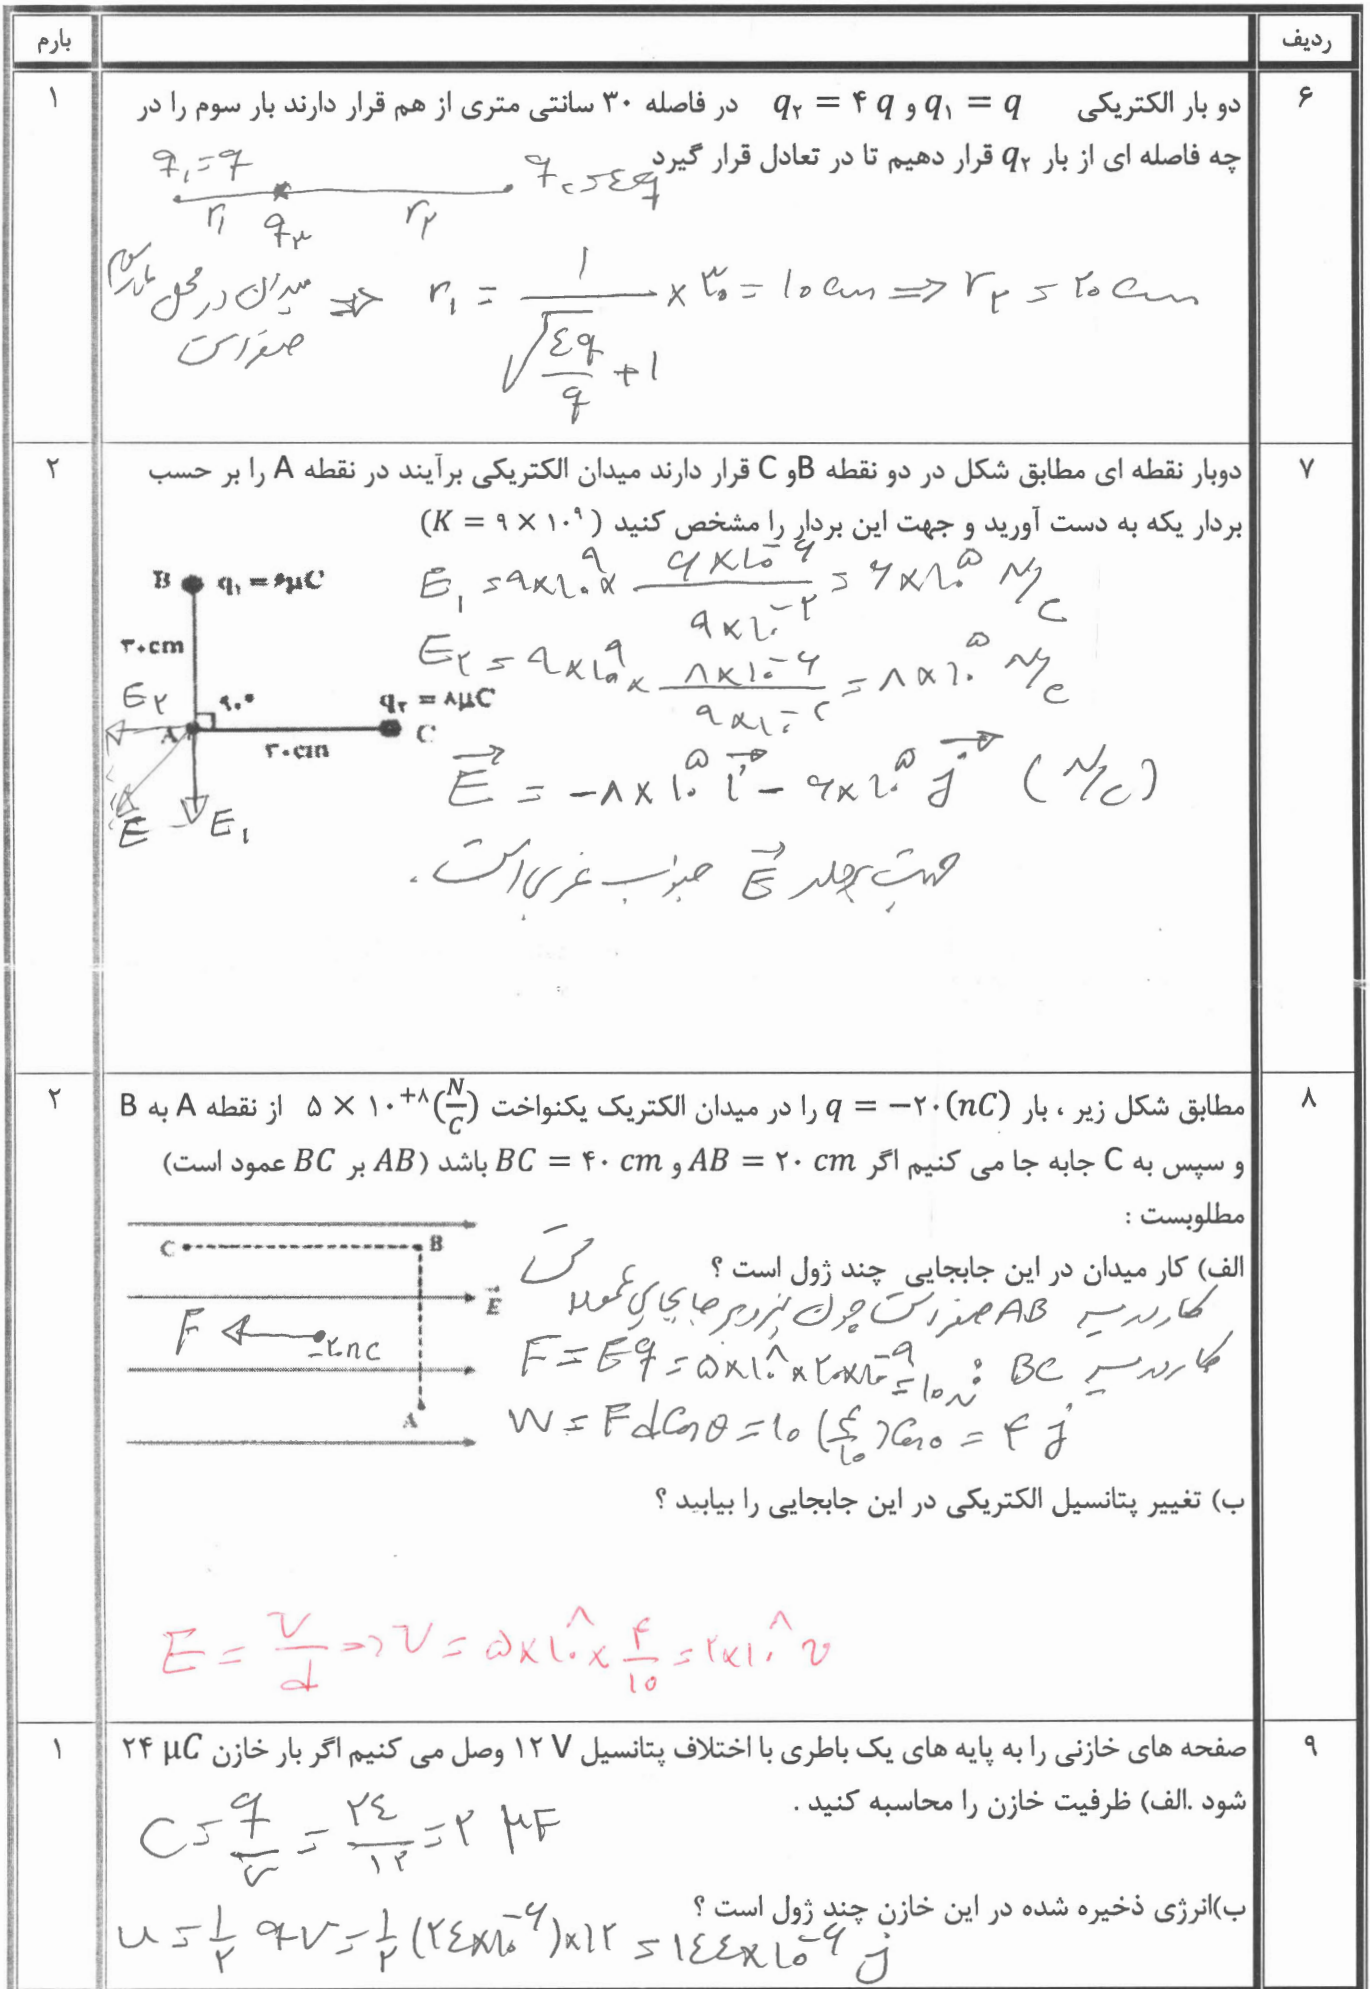 ردیف
بارم
۶
۱
دو بار الکتریکی q₁ = q و q₂ = ۴ q در فاصله ۳۰ سانتی متری از هم قرار دارند بار سوم را در
چه فاصله ای از بار q₂ قرار دهیم تا در تعادل قرار گیرد
q₁ = q
q₂ = ٤q
r₁ q₃ r₂
میدان در محل بار سوم صفر است ⇒ r₁ = 1/(√(٤q/q) + 1) × ۳۰ = ۱۰ cm ⇒ r₂ = ۲۰ cm
۷
۲
دوبار نقطه ای مطابق شکل در دو نقطه Bو C قرار دارند میدان الکتریکی برآیند در نقطه A را بر حسب
بردار یکه به دست آورید و جهت این بردار را مشخص کنید (K = ۹ × ۱۰⁹)
B q₁ = ۶μC
۳۰cm
E₂
۹۰°
q₂ = ۸μC
A
C
۳۰cm
E
E₁
E₁ = ۹×۱۰⁹ × (۶×۱۰⁻⁶)/(۹×۱۰⁻²) = ۶×۱۰⁵ N/C
E₂ = ۹×۱۰⁹ × (۸×۱۰⁻⁶)/(۹×۱۰⁻²) = ۸×۱۰⁵ N/C
E = −۸×۱۰⁵ i − ۶×۱۰⁵ j (N/C)
جهت بردار E جنوب غربی است.
۸
۲
مطابق شکل زیر ، بار q = −۲۰(nC) را در میدان الکتریک یکنواخت ۵ × ۱۰⁺⁸(N/C) از نقطه A به B
و سپس به C جابه جا می کنیم اگر AB = ۲۰ cm و BC = ۴۰ cm باشد (AB بر BC عمود است)
مطلوبست :
C
B
E
F
−۲۰nC
A
الف) کار میدان در این جابجایی چند ژول است ؟
کار در مسیر AB صفر است چون نیرو بر جابجایی عمود است
کار در مسیر BC : F = Eq = ۵×۱۰⁸×۲۰×۱۰⁻⁹ = ۱۰ن
W = Fd Cosθ = ۱۰ (٤/۱۰) Cos۰ = ۴ j
ب) تغییر پتانسیل الکتریکی در این جابجایی را بیابید ؟
E = V/d ⇒ V = ۵×۱۰⁸ × ۴/۱۰ = ۲×۱۰⁸ v
۹
۱
صفحه های خازنی را به پایه های یک باطری با اختلاف پتانسیل ۱۲ V وصل می کنیم اگر بار خازن ۲۴ μC
شود .الف) ظرفیت خازن را محاسبه کنید .
C = q/v = ۲٤/۱۲ = ۲ μF
ب)انرژی ذخیره شده در این خازن چند ژول است ؟
u = ۱/۲ qv = ۱/۲ (۲٤×۱۰⁻⁶)×۱۲ = ۱٤٤×۱۰⁻⁶ j